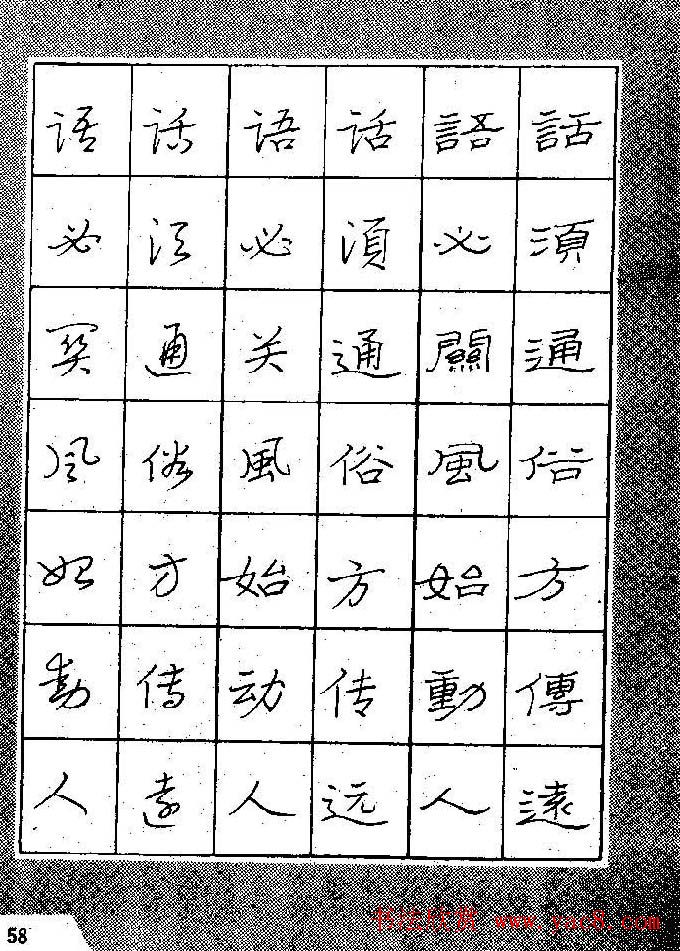 语 话 语 话 語 話
必 须 必 須 必 須
关 通 关 通 關 通
风 俗 風 俗 風 俗
始 方 始 方 始 方
动 传 动 传 動 傳
人 远 人 远 人 遠
58
书法欣赏 www.yac8.com